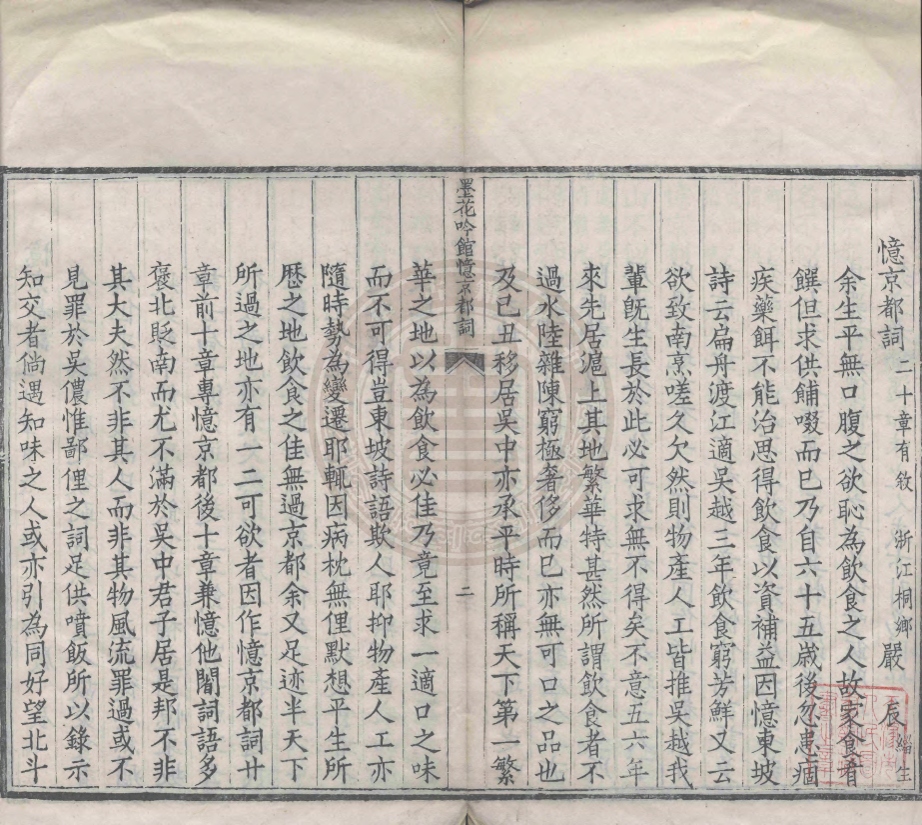 憶京都詞 二十章有敘 浙江桐鄉嚴 辰緇生
余生平無口腹之欲恥為飲食之人故家食肴
饌但求供餔啜而已乃自六十五歲後忽患痼
疾藥餌不能治思得飲食以資補益因憶東坡
詩云扁舟渡江適吳越三年飲食窮芳鮮又云
欲致南烹嗟久欠然則物產人工皆推吳越我
輩既生長於此必可求無不得矣不意五六年
來先居滬上其地繁華特甚然所謂飲食者不
過水陸雜陳窮極奢侈而已亦無可口之品也
及己丑移居吳中亦承平時所稱天下第一繁
墨花吟館憶京都詞 二
華之地以為飲食必佳乃竟至求一適口之味
而不可得豈東坡詩語欺人耶抑物產人工亦
隨時勢為變遷耶輒因病枕無俚默想平生所
歷之地飲食之佳無過京都余又足迹半天下
所過之地亦有一二可欲者因作憶京都詞廿
章前十章專憶京都後十章兼憶他闇詞語多
褒北貶南而尤不滿於吳中君子居是邦不非
其大夫然不非其人而非其物風流罪過或不
見罪於吳儂惟鄙俚之詞足供噴飯所以錄示
知交者倘遇知味之人或亦引為同好望北斗